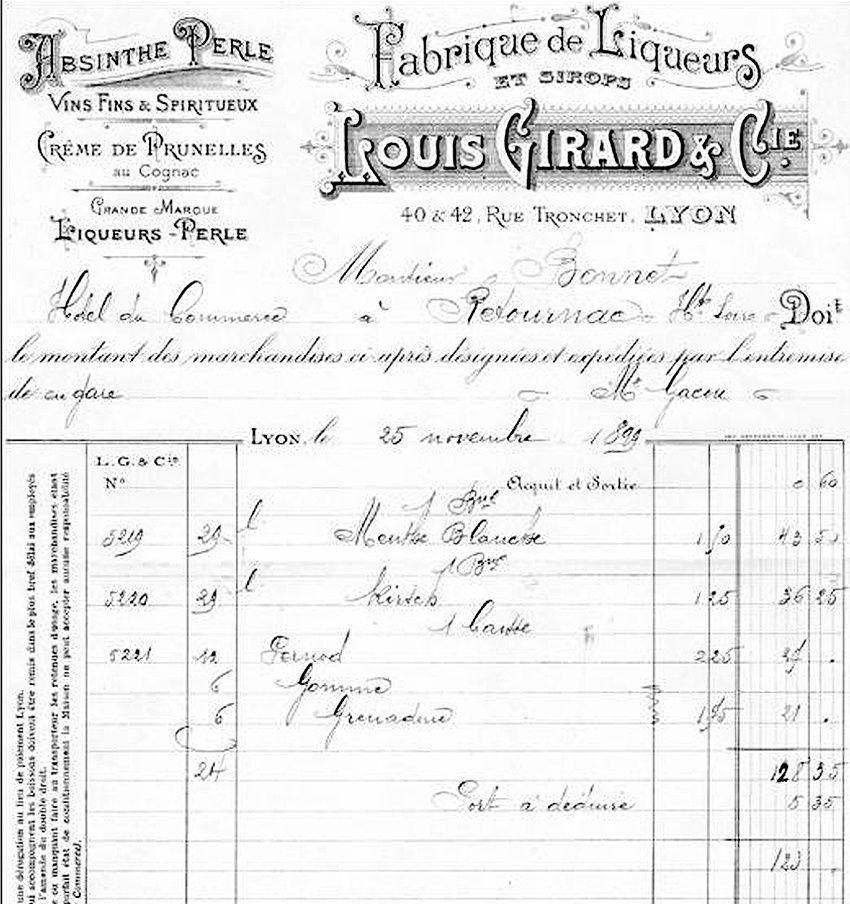 ABSINTHE PERLE
VINS FINS & SPIRITUEUX
CRÉME DE PRUNELLES
au Cognac
GRANDE MARQUE
LIQUEURS-PERLE
Fabrique de Liqueurs
ET SIROPS
LOUIS GIRARD & CIE.
40 & 42, RUE TRONCHET, LYON
Monsieur Bonnet
Hôtel du Commerce à Retournac Hte Loire Doit
le montant des marchandises ci après désignées et expédiées par l'entremise
de en gare Mr
LYON, le 25 novembre 1899
L. G. & Cie
No Acquit et Sortie 0 60
1 Bne
5219 29 l Menthe Blanche 1 50 43 50
1 Bne
5220 29 l Kirsch 1 25 36 25
1 Caisse
5221 12 Pernod 2 25 27 .
6 Gomme
6 Grenadine 1 75 21 .
24 128 35
Port à déduire 5 35
123 .
une dérogation au lieu de paiement Lyon.
ui accompagnent les boissons doivent être remis dans le plus bref délai aux employés
l'amende du double droit.
e ou manquant faire au transporteur les retenues d'usage, les marchandises étant
parfait état de conditionnement la Maison ne peut accepter aucune responsabilité
Commerce).